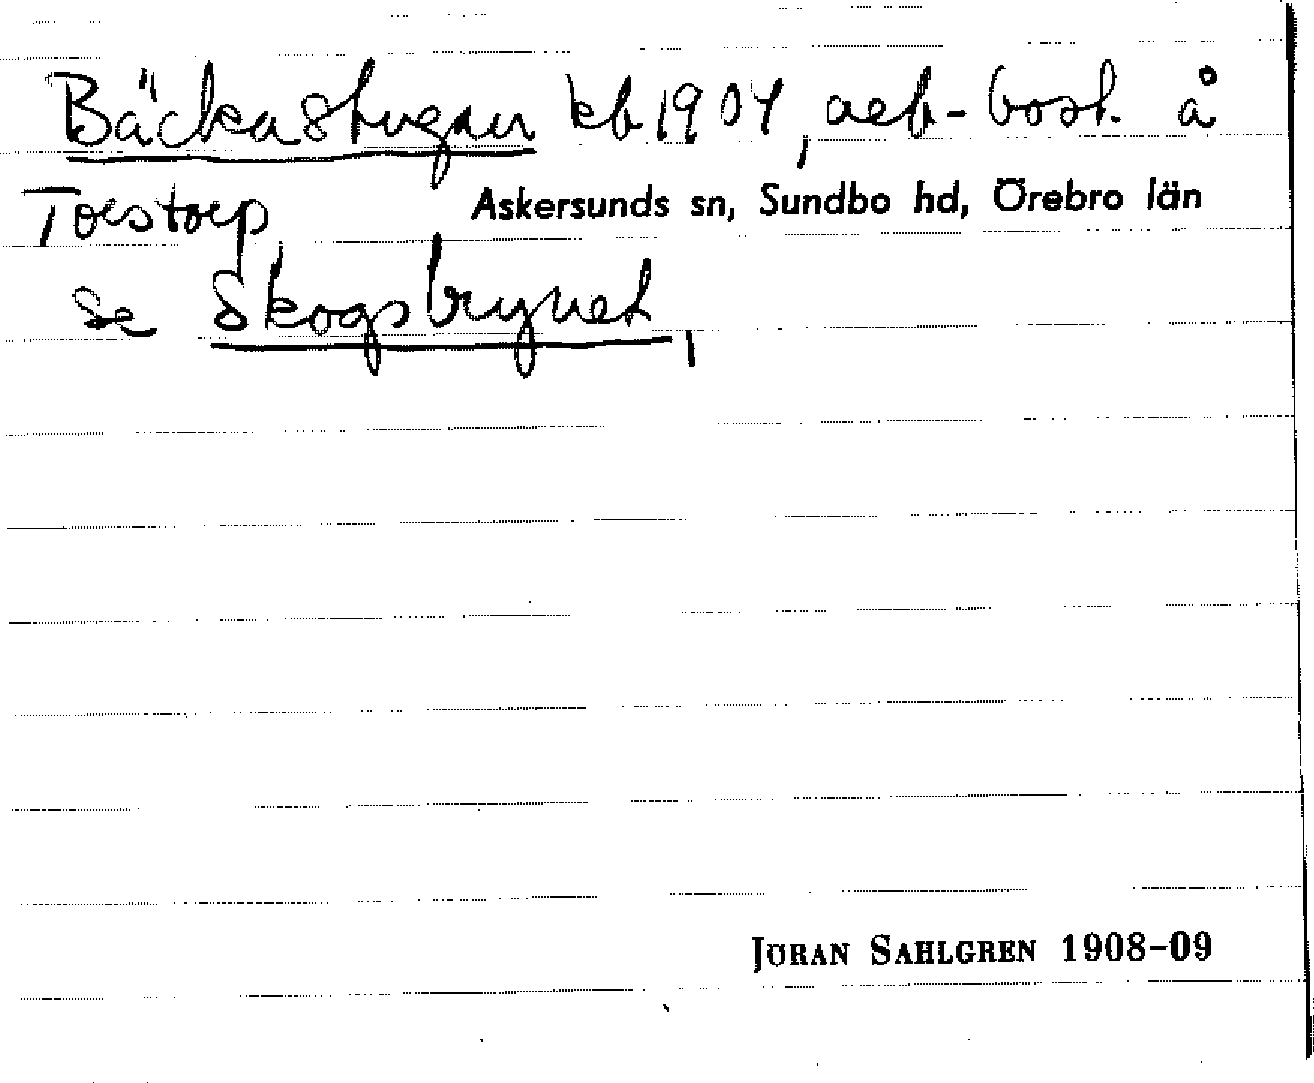 Bäckastugan kb 1904, arb-bost. å
Torstorp, Askersunds sn, Sundbo hd, Örebro län
se Skogsbrynet,
JÖRAN SAHLGREN 1908-09